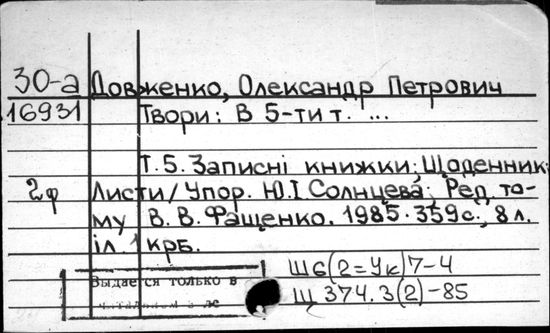 30-а Довженко, Олександр Петрович
16931 Твори: В 5-ти т. ...
Т.5. Записні книжки; Щоденник;
2ф Листи/Упор. Ю.І.Солнцева; Ред. то-
му В.В.Фащенко. 1985. 359с., 8 л.
іл. 1 крб.
Ш6(2=Ук)7-4
Выдается только в
Щ 374.3(2)-85